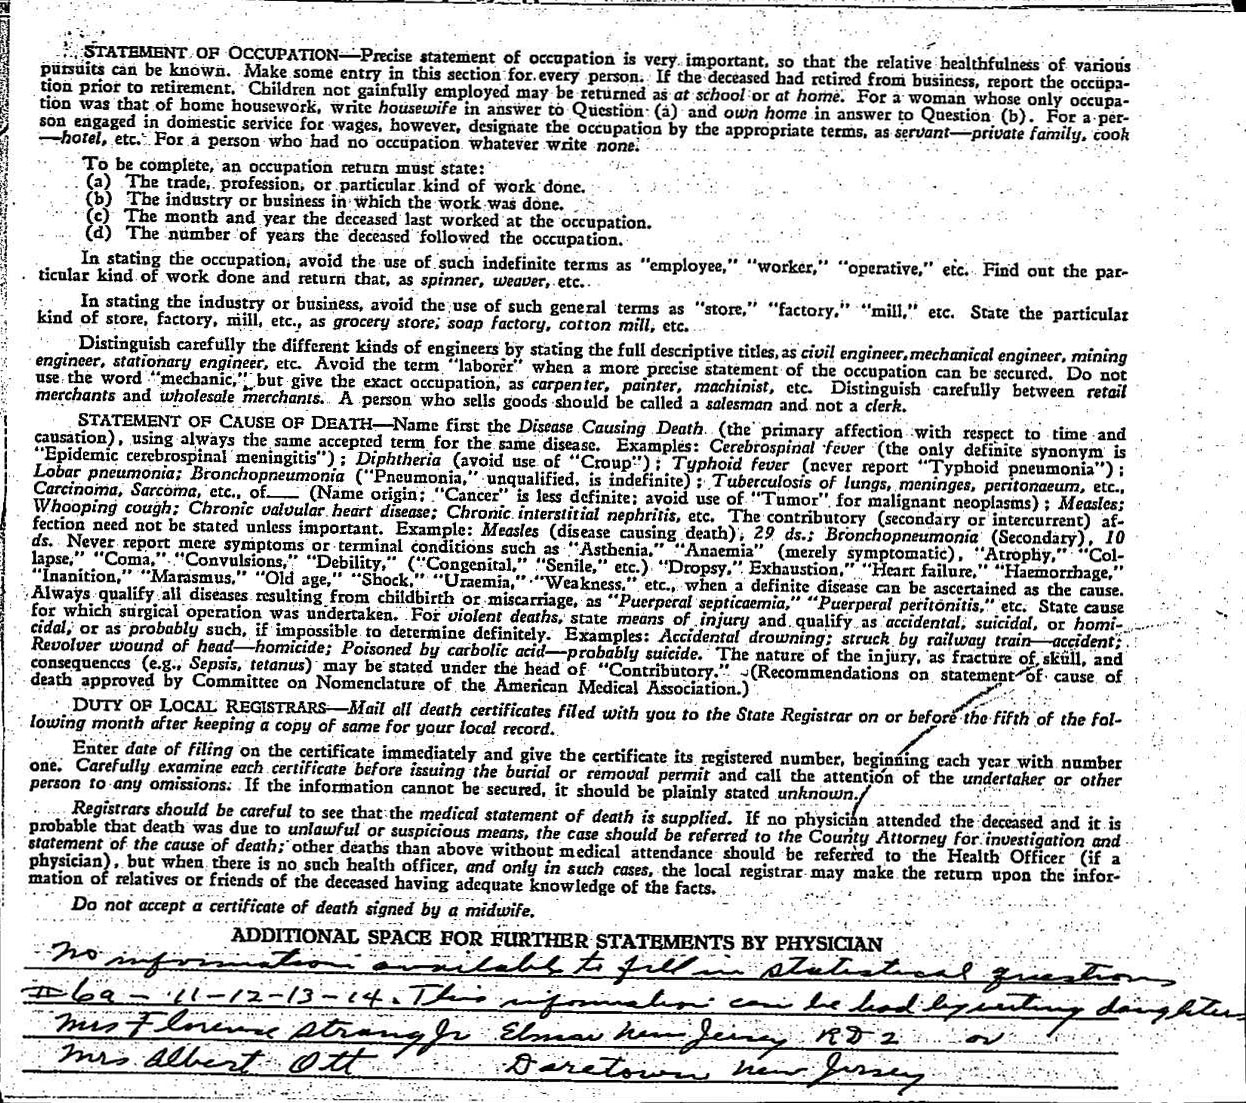 STATEMENT OF OCCUPATION—Precise statement of occupation is very important, so that the relative healthfulness of various
pursuits can be known. Make some entry in this section for every person. If the deceased had retired from business, report the occupa-
tion prior to retirement. Children not gainfully employed may be returned as at school or at home. For a woman whose only occupa-
tion was that of home housework, write housewife in answer to Question (a) and own home in answer to Question (b). For a per-
son engaged in domestic service for wages, however, designate the occupation by the appropriate terms, as servant—private family, cook
—hotel, etc. For a person who had no occupation whatever write none.
To be complete, an occupation return must state:
(a) The trade, profession, or particular kind of work done.
(b) The industry or business in which the work was done.
(c) The month and year the deceased last worked at the occupation.
(d) The number of years the deceased followed the occupation.
In stating the occupation, avoid the use of such indefinite terms as "employee," "worker," "operative," etc. Find out the par-
ticular kind of work done and return that, as spinner, weaver, etc.
In stating the industry or business, avoid the use of such general terms as "store," "factory," "mill," etc. State the particular
kind of store, factory, mill, etc., as grocery store; soap factory, cotton mill, etc.
Distinguish carefully the different kinds of engineers by stating the full descriptive titles, as civil engineer, mechanical engineer, mining
engineer, stationary engineer, etc. Avoid the term "laborer" when a more precise statement of the occupation can be secured. Do not
use the word "mechanic," but give the exact occupation, as carpenter, painter, machinist, etc. Distinguish carefully between retail
merchants and wholesale merchants. A person who sells goods should be called a salesman and not a clerk.
STATEMENT OF CAUSE OF DEATH—Name first the Disease Causing Death (the primary affection with respect to time and
causation), using always the same accepted term for the same disease. Examples: Cerebrospinal fever (the only definite synonym is
"Epidemic cerebrospinal meningitis"); Diphtheria (avoid use of "Croup"); Typhoid fever (never report "Typhoid pneumonia");
Lobar pneumonia; Bronchopneumonia ("Pneumonia," unqualified, is indefinite); Tuberculosis of lungs, meninges, peritonaeum, etc.,
Carcinoma, Sarcoma, etc., of___ (Name origin; "Cancer" is less definite; avoid use of "Tumor" for malignant neoplasms); Measles;
Whooping cough; Chronic valvular heart disease; Chronic interstitial nephritis, etc. The contributory (secondary or intercurrent) af-
fection need not be stated unless important. Example: Measles (disease causing death), 29 ds.; Bronchopneumonia (Secondary), 10
ds. Never report mere symptoms or terminal conditions such as "Asthenia," "Anaemia" (merely symptomatic), "Atrophy," "Col-
lapse," "Coma," "Convulsions," "Debility," ("Congenital," "Senile," etc.) "Dropsy," Exhaustion," "Heart failure," "Haemorrhage,"
"Inanition," "Marasmus," "Old age," "Shock," "Uraemia," "Weakness," etc., when a definite disease can be ascertained as the cause.
Always qualify all diseases resulting from childbirth or miscarriage, as "Puerperal septicaemia," "Puerperal peritonitis," etc. State cause
for which surgical operation was undertaken. For violent deaths, state means of injury and qualify as accidental, suicidal, or homi-
cidal, or as probably such, if impossible to determine definitely. Examples: Accidental drowning; struck by railway train—accident;
Revolver wound of head—homicide; Poisoned by carbolic acid—probably suicide. The nature of the injury, as fracture of skull, and
consequences (e.g., Sepsis, tetanus) may be stated under the head of "Contributory." (Recommendations on statement of cause of
death approved by Committee on Nomenclature of the American Medical Association.)
DUTY OF LOCAL REGISTRARS—Mail all death certificates filed with you to the State Registrar on or before the fifth of the fol-
lowing month after keeping a copy of same for your local record.
Enter date of filing on the certificate immediately and give the certificate its registered number, beginning each year with number
one. Carefully examine each certificate before issuing the burial or removal permit and call the attention of the undertaker or other
person to any omissions. If the information cannot be secured, it should be plainly stated unknown.
Registrars should be careful to see that the medical statement of death is supplied. If no physician attended the deceased and it is
probable that death was due to unlawful or suspicious means, the case should be referred to the County Attorney for investigation and
statement of the cause of death; other deaths than above without medical attendance should be referred to the Health Officer (if a
physician), but when there is no such health officer, and only in such cases, the local registrar may make the return upon the infor-
mation of relatives or friends of the deceased having adequate knowledge of the facts.
Do not accept a certificate of death signed by a midwife.
ADDITIONAL SPACE FOR FURTHER STATEMENTS BY PHYSICIAN
No information available to fill in statistical questions
II 6a - 11-12-13-14. This information can be had by writing daughters
Mrs Florence Strang Jr Elmer New Jersey RD 2 or
Mrs. Albert Ott Daretown New Jersey